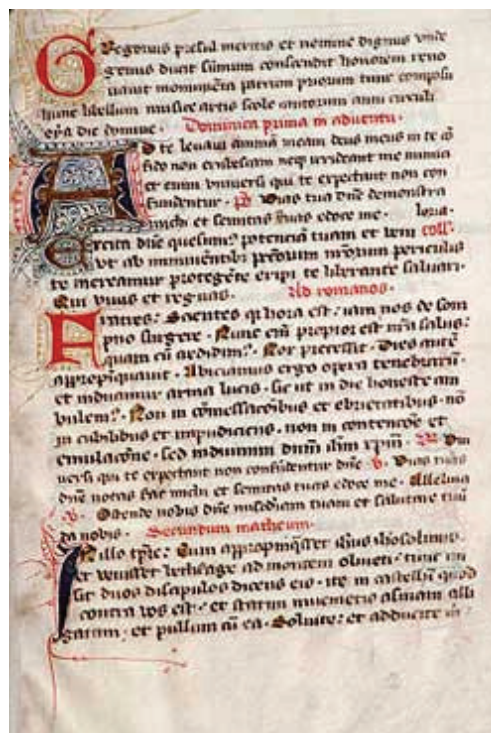 Gregorius presul meritis et nomine dignus unde
genus ducit sūmum conscendit honorem reno
uauit monumēta patrum priorum tunc composu
hunc libellum musice artis scole cantorum anni circuli
Dominica prima in aduentu.
Ad te leuaui animā meam deus meus in te cō
fido non erubescam neq irrideant me inimici
et enim uniuersi qui te expectant non con
fundentur. ps Uias tuas dn̄e demonstra
michi et semitas tuas edoce me. loria.
Excita dn̄e quesum potenciā tuam et ueni coll
ut ab imminentibus pctōrum nr̄orum periculis
te mereamur protegēte eripi te liberante saluari.
Qui uiuis et regnas. Ad romanos.
Fratres: Scientes q hora est: iam nos de som
pno surgere. Nunc em̄ propior est nr̄a salus:
quam cū credidim?. Nox precessit. Dies autē
appropiquauit. Abiciamus ergo opera tenebrarū.
et induamur arma lucis. sic ut in die honeste am
bulem?. Non in cōmessacōibus et ebrietatibus. nō
in cubilibus et impudiciciis. non in contencōe et
emulacōne. sed induimini dnm̄ ihm xpm̄. Uni
uersi qui te expectant non confūdentur dn̄e. v. Uias tuas
dn̄e notas fac michi et semitas tuas edoce me. Alleluia
.v. Ostende nobis dn̄e misc̄diam tuam et salutare tuū
da nobis. Secundum matheum.
In illo tp̄re: Cum appropinq̄sset ihūs ihosolimis.
et uenisset bethfage ad montem oliueti: tunc mi
sit duos discipulos dicens eis. ite in castellū quod
contra uos est. et statim inuenietis asinam alli
gatam: et pullum cū ea. Soluite: et adducite m